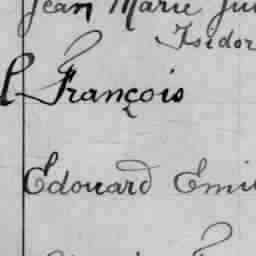 Jean Marie
Isidor
François
Edouard Emil